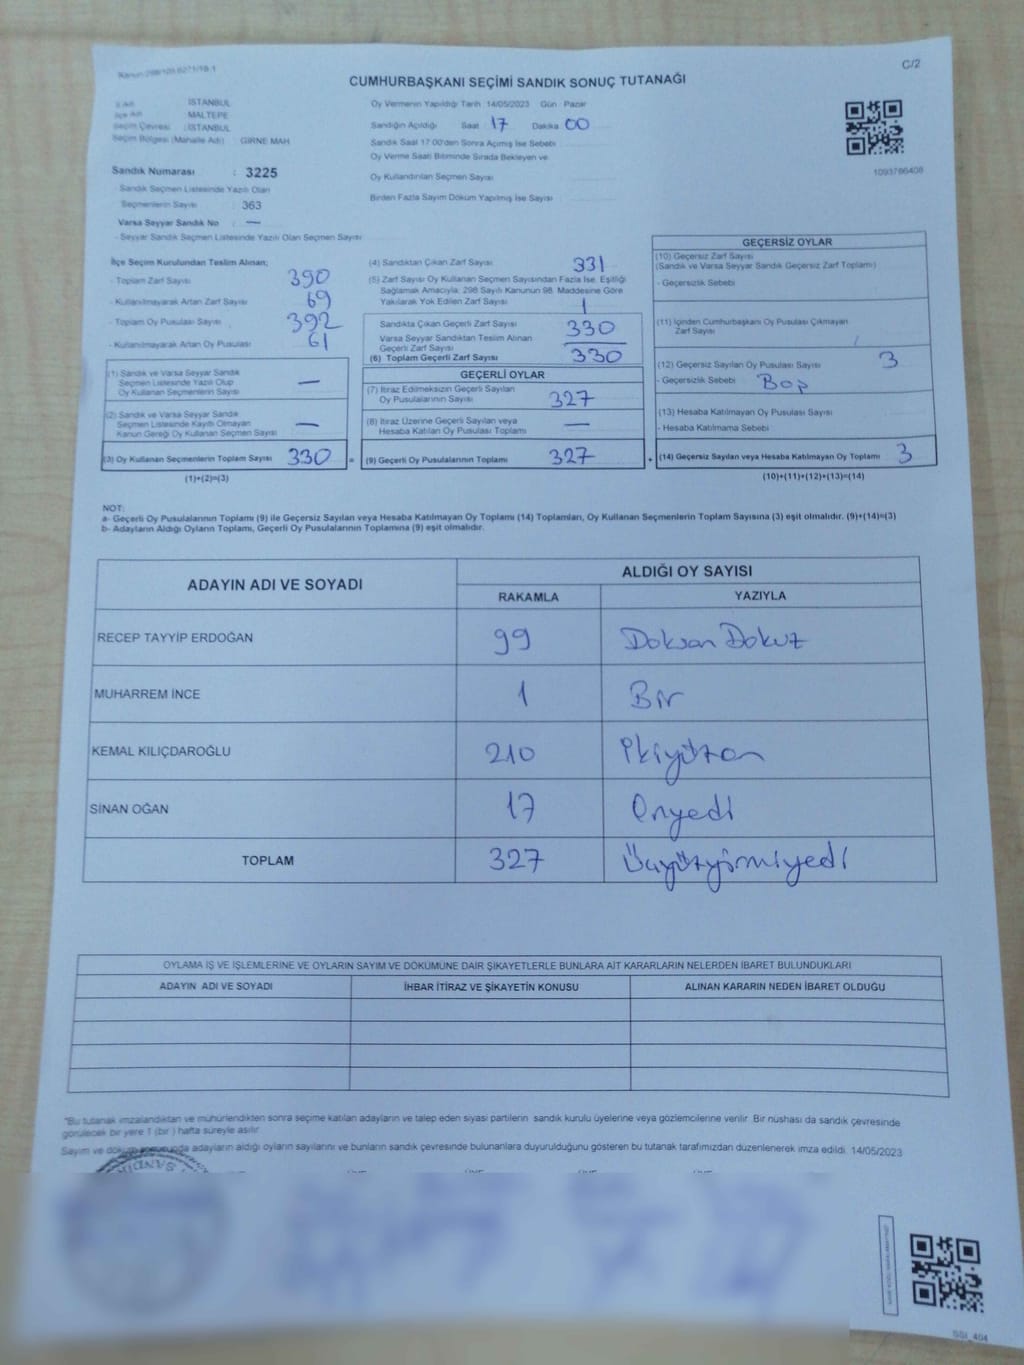 C/2
CUMHURBAŞKANI SEÇİMİ SANDIK SONUÇ TUTANAĞI
İl Adı : İSTANBUL
İlçe Adı : MALTEPE
Seçim Çevresi : İSTANBUL
Seçim Bölgesi (Mahalle Adı) : GİRNE MAH
Sandık Numarası : 3225
- Sandık Seçmen Listesinde Yazılı Olan
Seçmenlerin Sayısı : 363
Varsa Seyyar Sandık No : —
- Seyyar Sandık Seçmen Listesinde Yazılı Olan Seçmen Sayısı
Oy Vermenin Yapıldığı Tarih :14/05/2023 Gün : Pazar
Sandığın Açıldığı Saat : 17 Dakika : 00
Sandık Saat 17:00'den Sonra Açılmış İse Sebebi
Oy Verme Saati Bitiminde Sırada Bekleyen ve
Oy Kullandırılan Seçmen Sayısı
Birden Fazla Sayım Döküm Yapılmış İse Sayısı
1093766408
İlçe Seçim Kurulundan Teslim Alınan;
- Toplam Zarf Sayısı : 390
- Kullanılmayarak Artan Zarf Sayısı : 69
- Toplam Oy Pusulası Sayısı : 392
- Kullanılmayarak Artan Oy Pusulası : 61
(1) Sandık ve Varsa Seyyar Sandık
Seçmen Listesinde Yazılı Olup
Oy Kullanan Seçmenlerin Sayısı —
(2) Sandık ve Varsa Seyyar Sandık
Seçmen Listesinde Kayıtlı Olmayan
Kanun Gereği Oy Kullanan Seçmen Sayısı —
(3) Oy Kullanan Seçmenlerin Toplam Sayısı 330
(1)+(2)=(3)
(4) Sandıktan Çıkan Zarf Sayısı : 331
(5) Zarf Sayısı Oy Kullanan Seçmen Sayısından Fazla İse, Eşitliği
Sağlamak Amacıyla, 298 Sayılı Kanunun 98. Maddesine Göre
Yakılarak Yok Edilen Zarf Sayısı : 1
Sandıkta Çıkan Geçerli Zarf Sayısı 330
Varsa Seyyar Sandıktan Teslim Alınan
Geçerli Zarf Sayısı
(6) Toplam Geçerli Zarf Sayısı 330
GEÇERLİ OYLAR
(7) İtiraz Edilmeksizin Geçerli Sayılan
Oy Pusulalarının Sayısı 327
(8) İtiraz Üzerine Geçerli Sayılan veya
Hesaba Katılan Oy Pusulası Toplamı —
= (9) Geçerli Oy Pusulalarının Toplamı 327
GEÇERSİZ OYLAR
(10) Geçersiz Zarf Sayısı
(Sandık ve Varsa Seyyar Sandık Geçersiz Zarf Toplamı)
- Geçersizlik Sebebi
(11) İçinden Cumhurbaşkanı Oy Pusulası Çıkmayan
Zarf Sayısı
(12) Geçersiz Sayılan Oy Pusulası Sayısı 3
- Geçersizlik Sebebi Boş
(13) Hesaba Katılmayan Oy Pusulası Sayısı
- Hesaba Katılmama Sebebi
+ (14) Geçersiz Sayılan veya Hesaba Katılmayan Oy Toplamı 3
(10)+(11)+(12)+(13)=(14)
NOT:
a- Geçerli Oy Pusulalarının Toplamı (9) ile Geçersiz Sayılan veya Hesaba Katılmayan Oy Toplamı (14) Toplamları, Oy Kullanan Seçmenlerin Toplam Sayısına (3) eşit olmalıdır. (9)+(14)=(3)
b- Adayların Aldığı Oyların Toplamı, Geçerli Oy Pusulalarının Toplamına (9) eşit olmalıdır.
ADAYIN ADI VE SOYADI ALDIĞI OY SAYISI
RAKAMLA YAZIYLA
RECEP TAYYİP ERDOĞAN 99 Doksan Dokuz
MUHARREM İNCE 1 Bir
KEMAL KILIÇDAROĞLU 210 İkiyüzon
SİNAN OĞAN 17 Onyedi
TOPLAM 327 Üçyüzyirmiyedi
OYLAMA İŞ VE İŞLEMLERİNE VE OYLARIN SAYIM VE DÖKÜMÜNE DAİR ŞİKAYETLERLE BUNLARA AİT KARARLARIN NELERDEN İBARET BULUNDUKLARI
ADAYIN ADI VE SOYADI İHBAR İTİRAZ VE ŞİKAYETİN KONUSU ALINAN KARARIN NEDEN İBARET OLDUĞU
"Bu tutanak imzalandıktan ve mühürlendikten sonra seçime katılan adayların ve talep eden siyasi partilerin sandık kurulu üyelerine veya gözlemcilerine verilir. Bir nüshası da sandık çevresinde
görülecek bir yere 1 (bir) hafta süreyle asılır.
Sayım ve döküm sonucunda adayların aldığı oyların sayılarını ve bunların sandık çevresinde bulunanlara duyurulduğunu gösteren bu tutanak tarafımızdan düzenlenerek imza edildi. 14/05/2023